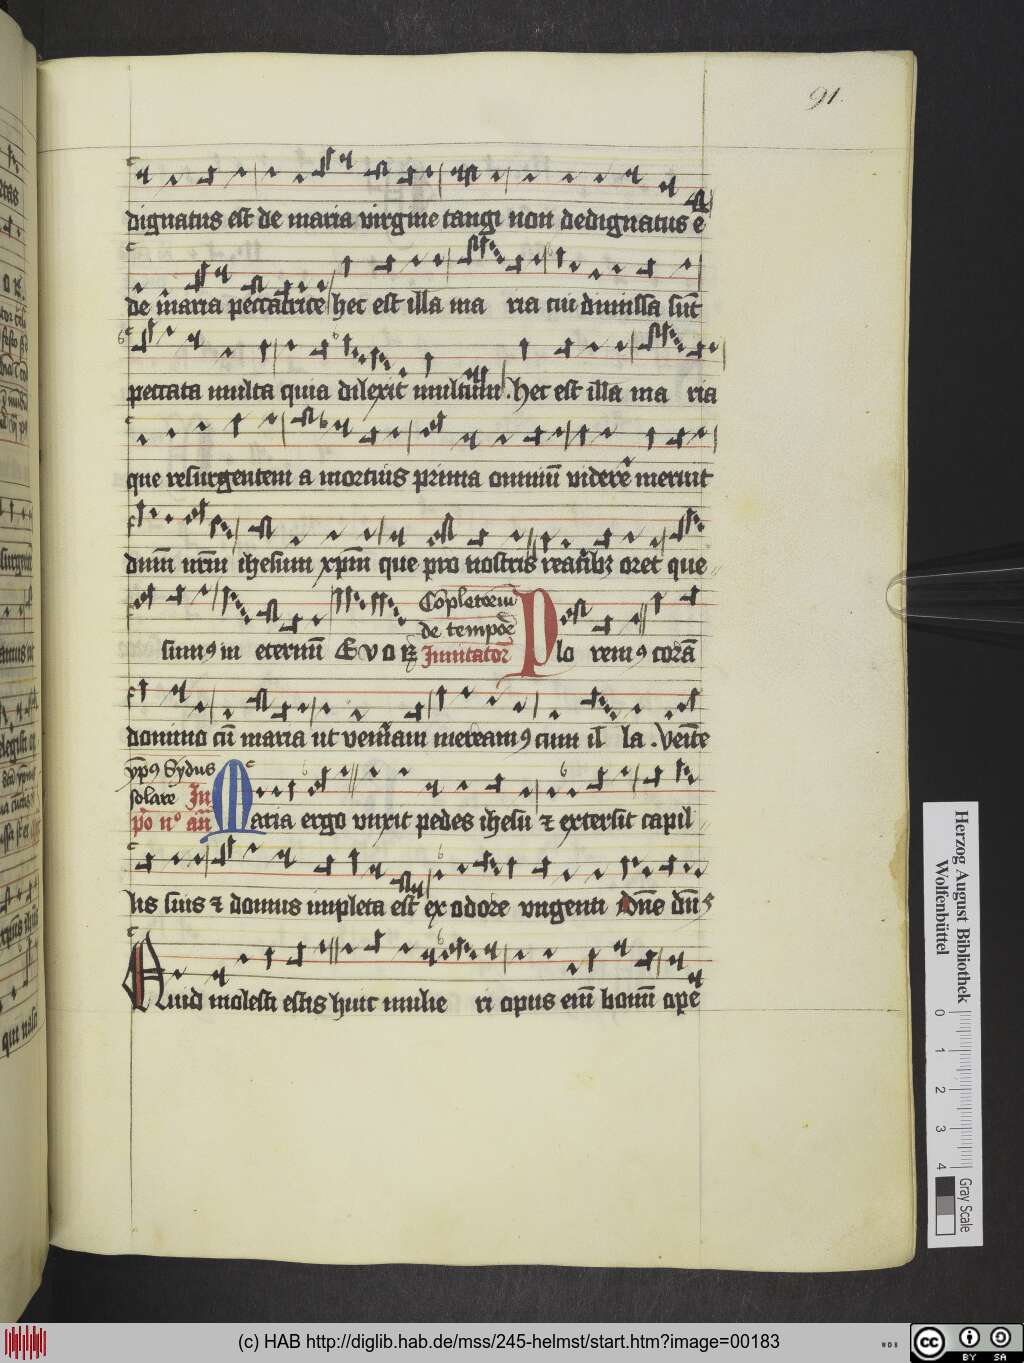 91.
dignatus est de maria virgine tangi non dedignatus ē
de maria peccatrice hec est illa ma ria cui dimissa sūt
peccata multa quia dilexit multum . hec est illa ma ria
que resurgentem a mortuis prima omniū videre meruit
dnm̄ nrm̄ ihesum xpm̄ que pro nostris reatibꝫ oret que
sumꝰ in eternū E v o
Cōpletoriū
de tempoē
Inuitatoꝝ
Plo remꝰ corā
domino cū maria ut veniam mereamꝰ cum il la . Venite
ypꝰ Sydus
solare In
pͦo nͦo añ
Maria ergo vnxit pedes ihesu ⁊ extersit capil
lis suis ⁊ domus impleta est ex odore vngenti Dn̄e dn̄s
Quid molesti estis huic mulie ri opus eni̅ bonū ope
Herzog August Bibliothek
Wolfenbüttel
0 1 2 3 4
Gray Scale
(c) HAB http://diglib.hab.de/mss/245-helmst/start.htm?image=00183
WDB
cc BY SA